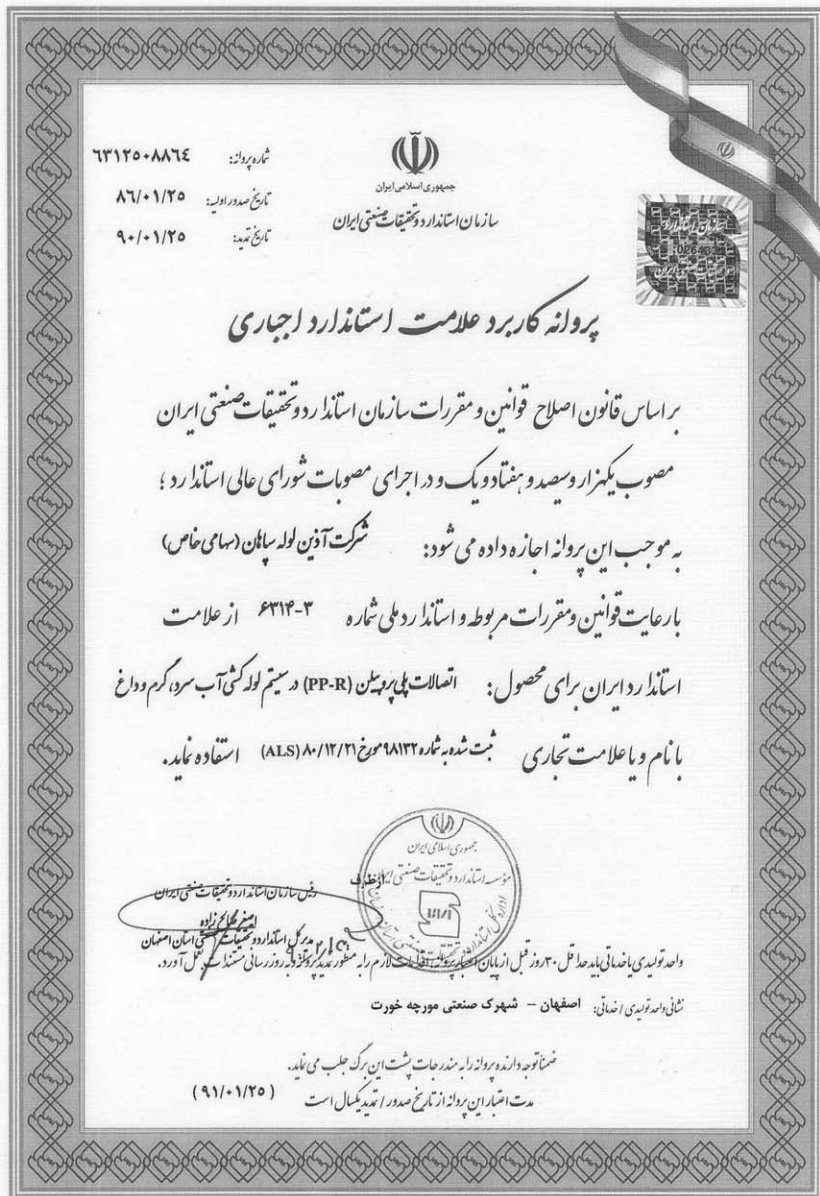 جمهوری اسلامی ایران
سازمان استاندارد و تحقیقات صنعتی ایران
شماره پروانه: ٦٣١٢٥٠٨٨٦٤
تاریخ صدور اولیه: ٨٦/٠١/٢٥
تاریخ تمدید: ٩٠/٠١/٢٥
سازمان استاندارد
026433
تحقیقات صنعتی ایران
پروانه کاربرد علامت استاندارد اجباری
بر اساس قانون اصلاح قوانین و مقررات سازمان استاندارد و تحقیقات صنعتی ایران
مصوب یکهزار و سیصد و هفتاد و یک و در اجرای مصوبات شورای عالی استاندارد ؛
به موجب این پروانه اجازه داده می شود: شرکت آذین لوله سپاهان (سهامی خاص)
با رعایت قوانین و مقررات مربوطه و استاندارد ملی شماره ۶۳۱۴-۳ از علامت
استاندارد ایران برای محصول: اتصالات پلی پروپیلن (PP-R) در سیستم لوله کشی آب سرد، گرم و داغ
با نام و یا علامت تجاری ثبت شده به شماره ۹۸۱۳۲ مورخ ۸۰/۱۲/۲۱ (ALS) استفاده نماید.
جمهوری اسلامی ایران
مؤسسه استاندارد و تحقیقات صنعتی ایران
از طرف
رئیس سازمان استاندارد و تحقیقات صنعتی ایران
مدیر کل استاندارد و تحقیقات صنعتی استان اصفهان
واحد تولیدی یا خدماتی باید حداقل ۳۰ روز قبل از پایان اعتبار پروانه، اقدامات لازم را به منظور تمدید پروانه و به روز رسانی مستندات بعمل آورد.
نشانی واحد تولیدی / خدماتی: اصفهان – شهرک صنعتی مورچه خورت
ضمناً توجه دارنده پروانه را به مندرجات پشت این برگ جلب می نماید.
مدت اعتبار این پروانه از تاریخ صدور / تمدید یکسال است (٩١/٠١/٢٥)